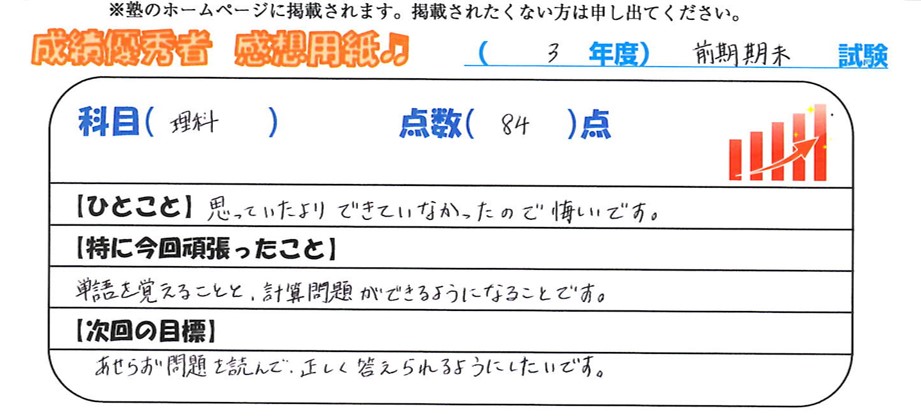 ※塾のホームページに掲載されます。掲載されたくない方は申し出てください。
成績優秀者 感想用紙♫ ( 3 年度) 前期期末 試験
科目( 理科 ) 点数( 84 )点
【ひとこと】思っていたよりできていなかったので悔しいです。
【特に今回頑張ったこと】
単語を覚えることと、計算問題ができるようになることです。
【次回の目標】
あせらず問題を読んで、正しく答えられるようにしたいです。